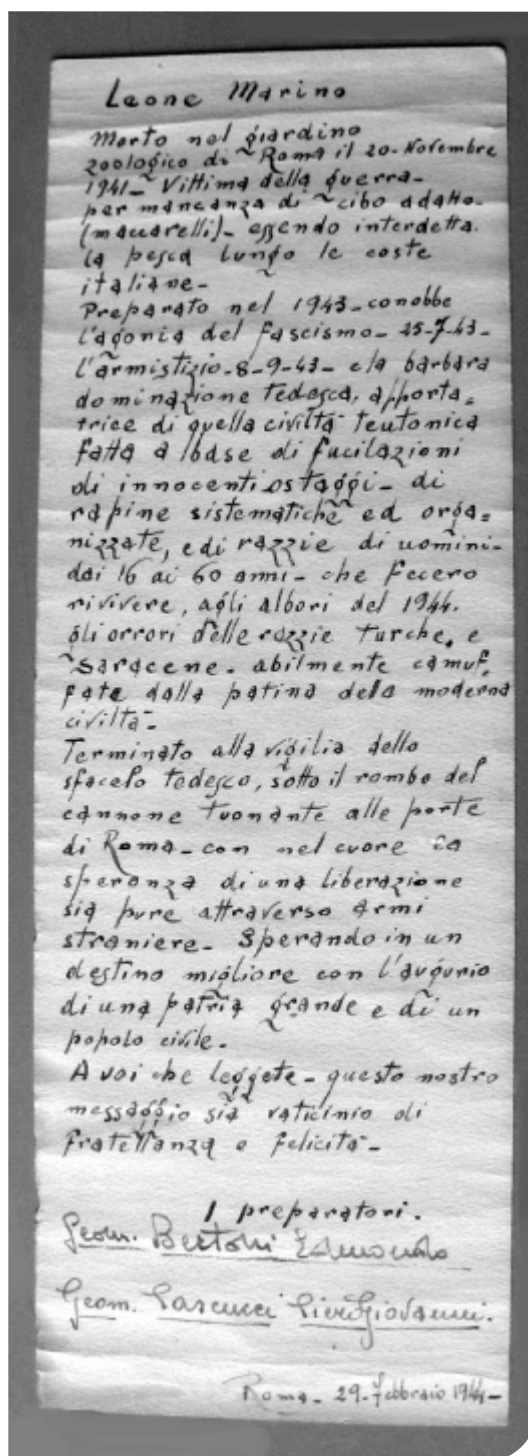 Leone Marino
Morto nel giardino
zoologico di Roma il 20-Novembre
1941- Vittima della guerra-
per mancanza di cibo adatto-
(maccarelli)- essendo interdetta.
la pesca lungo le coste
italiane-
Preparato nel 1943-conobbe
l'agonia del fascismo- 25-7-43-
l'armistizio-8-9-43- e la barbara
dominazione tedesca, apporta=
trice di quella civiltà teutonica
fatta a base di fucilazioni
di innocenti ostaggi- di
rapine sistematiche ed orga=
nizzate, e di razzie di uomini-
dai 16 ai 60 anni- che fecero
rivivere, agli albori del 1944.
gli orrori delle razzie turche, e
saracene. abilmente camuf,
fate dalla patina dela moderna
civiltà-
Terminato alla vigilia dello
sfacelo tedesco, sotto il rombo del
cannone tuonante alle porte
di Roma-con nel cuore la
speranza di una liberazione
sia pure attraverso armi
straniere- Sperando in un
destino migliore con l'augurio
di una patria grande e di un
popolo civile.
A voi che leggete- questo nostro
messaggio sia vaticinio di
fratellanza e felicità-
I preparatori.
Geom. Bertoni
Geom. Pascucci PierGiovanni.
Roma- 29-febbraio 1944-